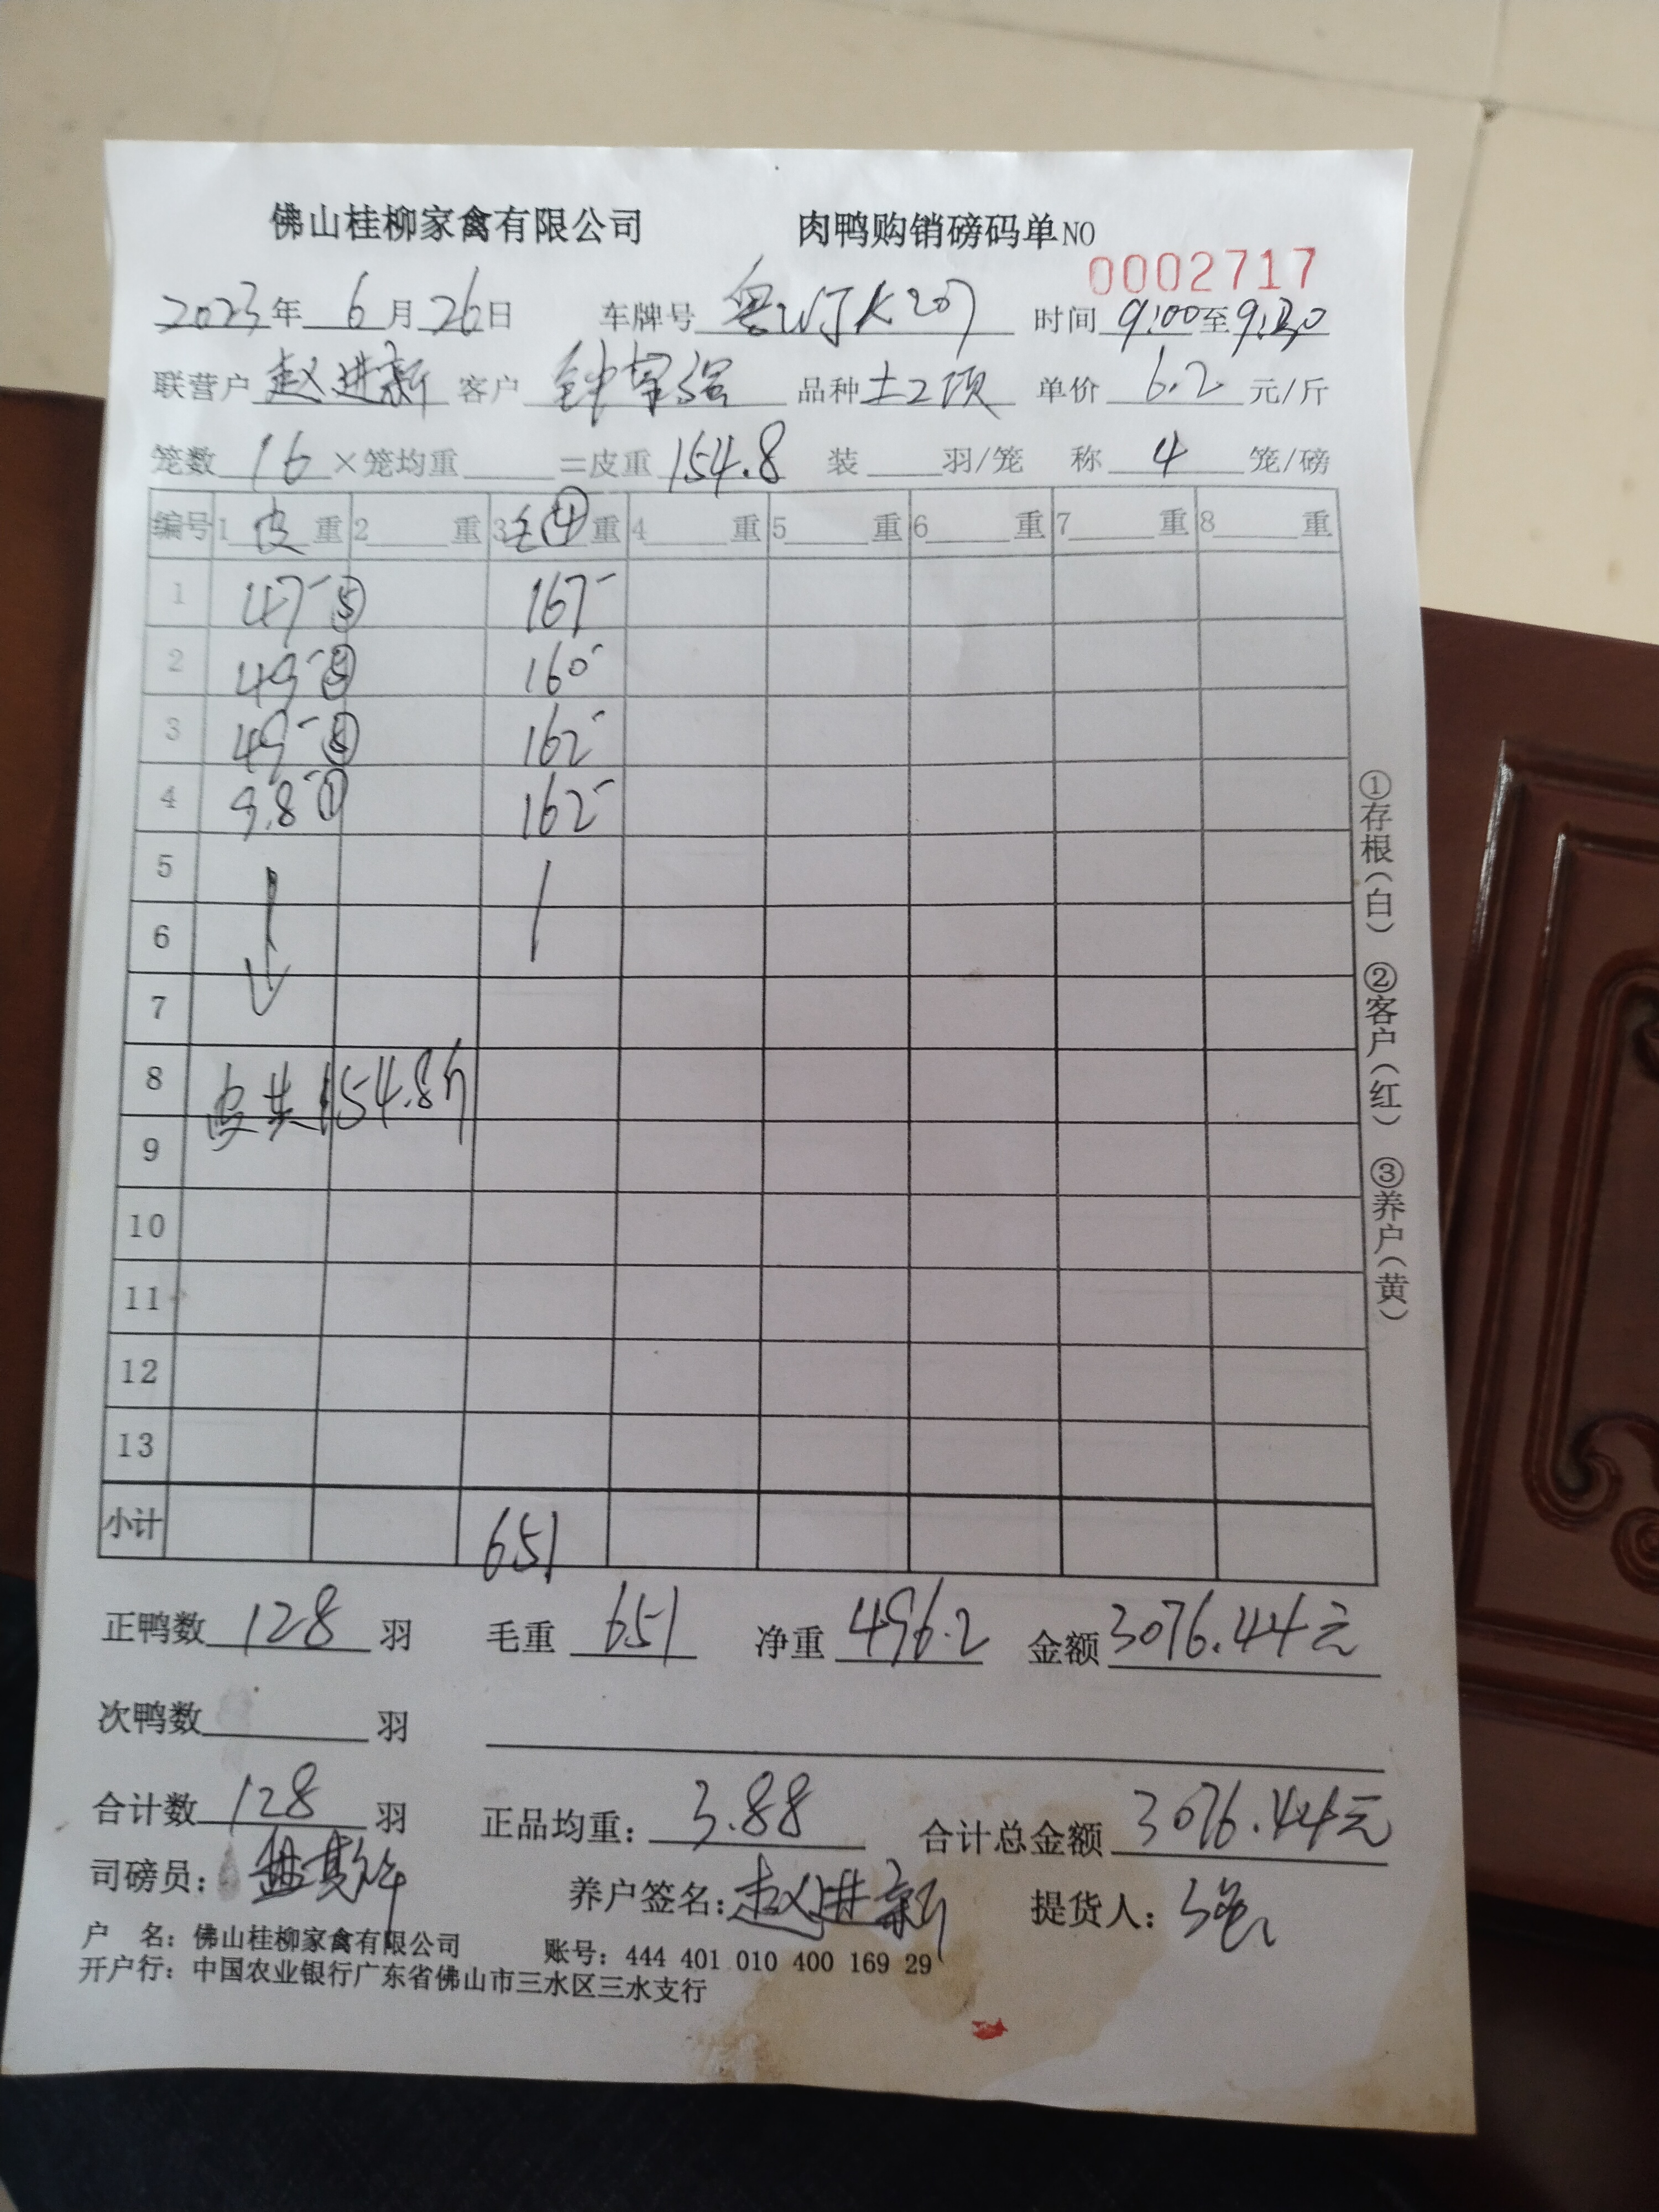 佛山桂柳家禽有限公司 肉鸭购销磅码单NO 0002717
2023年 6月26日 车牌号 粤 K207 时间 9:00至9:30
联营户 赵进新 客户 钟 强 品种 土2项 单价 6.2 元/斤
笼数 16 ×笼均重 =皮重 154.8 装 羽/笼 称 4 笼/磅
编号 1 皮 重 2 重 3 毛④ 重 4 重 5 重 6 重 7 重 8 重
1 47- ⑤ 167-
2 49- ⑤ 160-
3 49- ⑤ 162-
4 9.8- ① 162-
5
6
7
8 皮共154.8斤
9
10
11
12
13
小计 651
正鸭数 128 羽 毛重 651 净重 496.2 金额 3076.44元
次鸭数 羽
合计数 128 羽 正品均重: 3.88 合计总金额 3076.44元
司磅员: 养户签名: 赵进新 提货人: 强
户 名: 佛山桂柳家禽有限公司 账号: 444 401 010 400 169 29
开户行: 中国农业银行广东省佛山市三水区三水支行
①存根(白) ②客户(红) ③养户(黄)